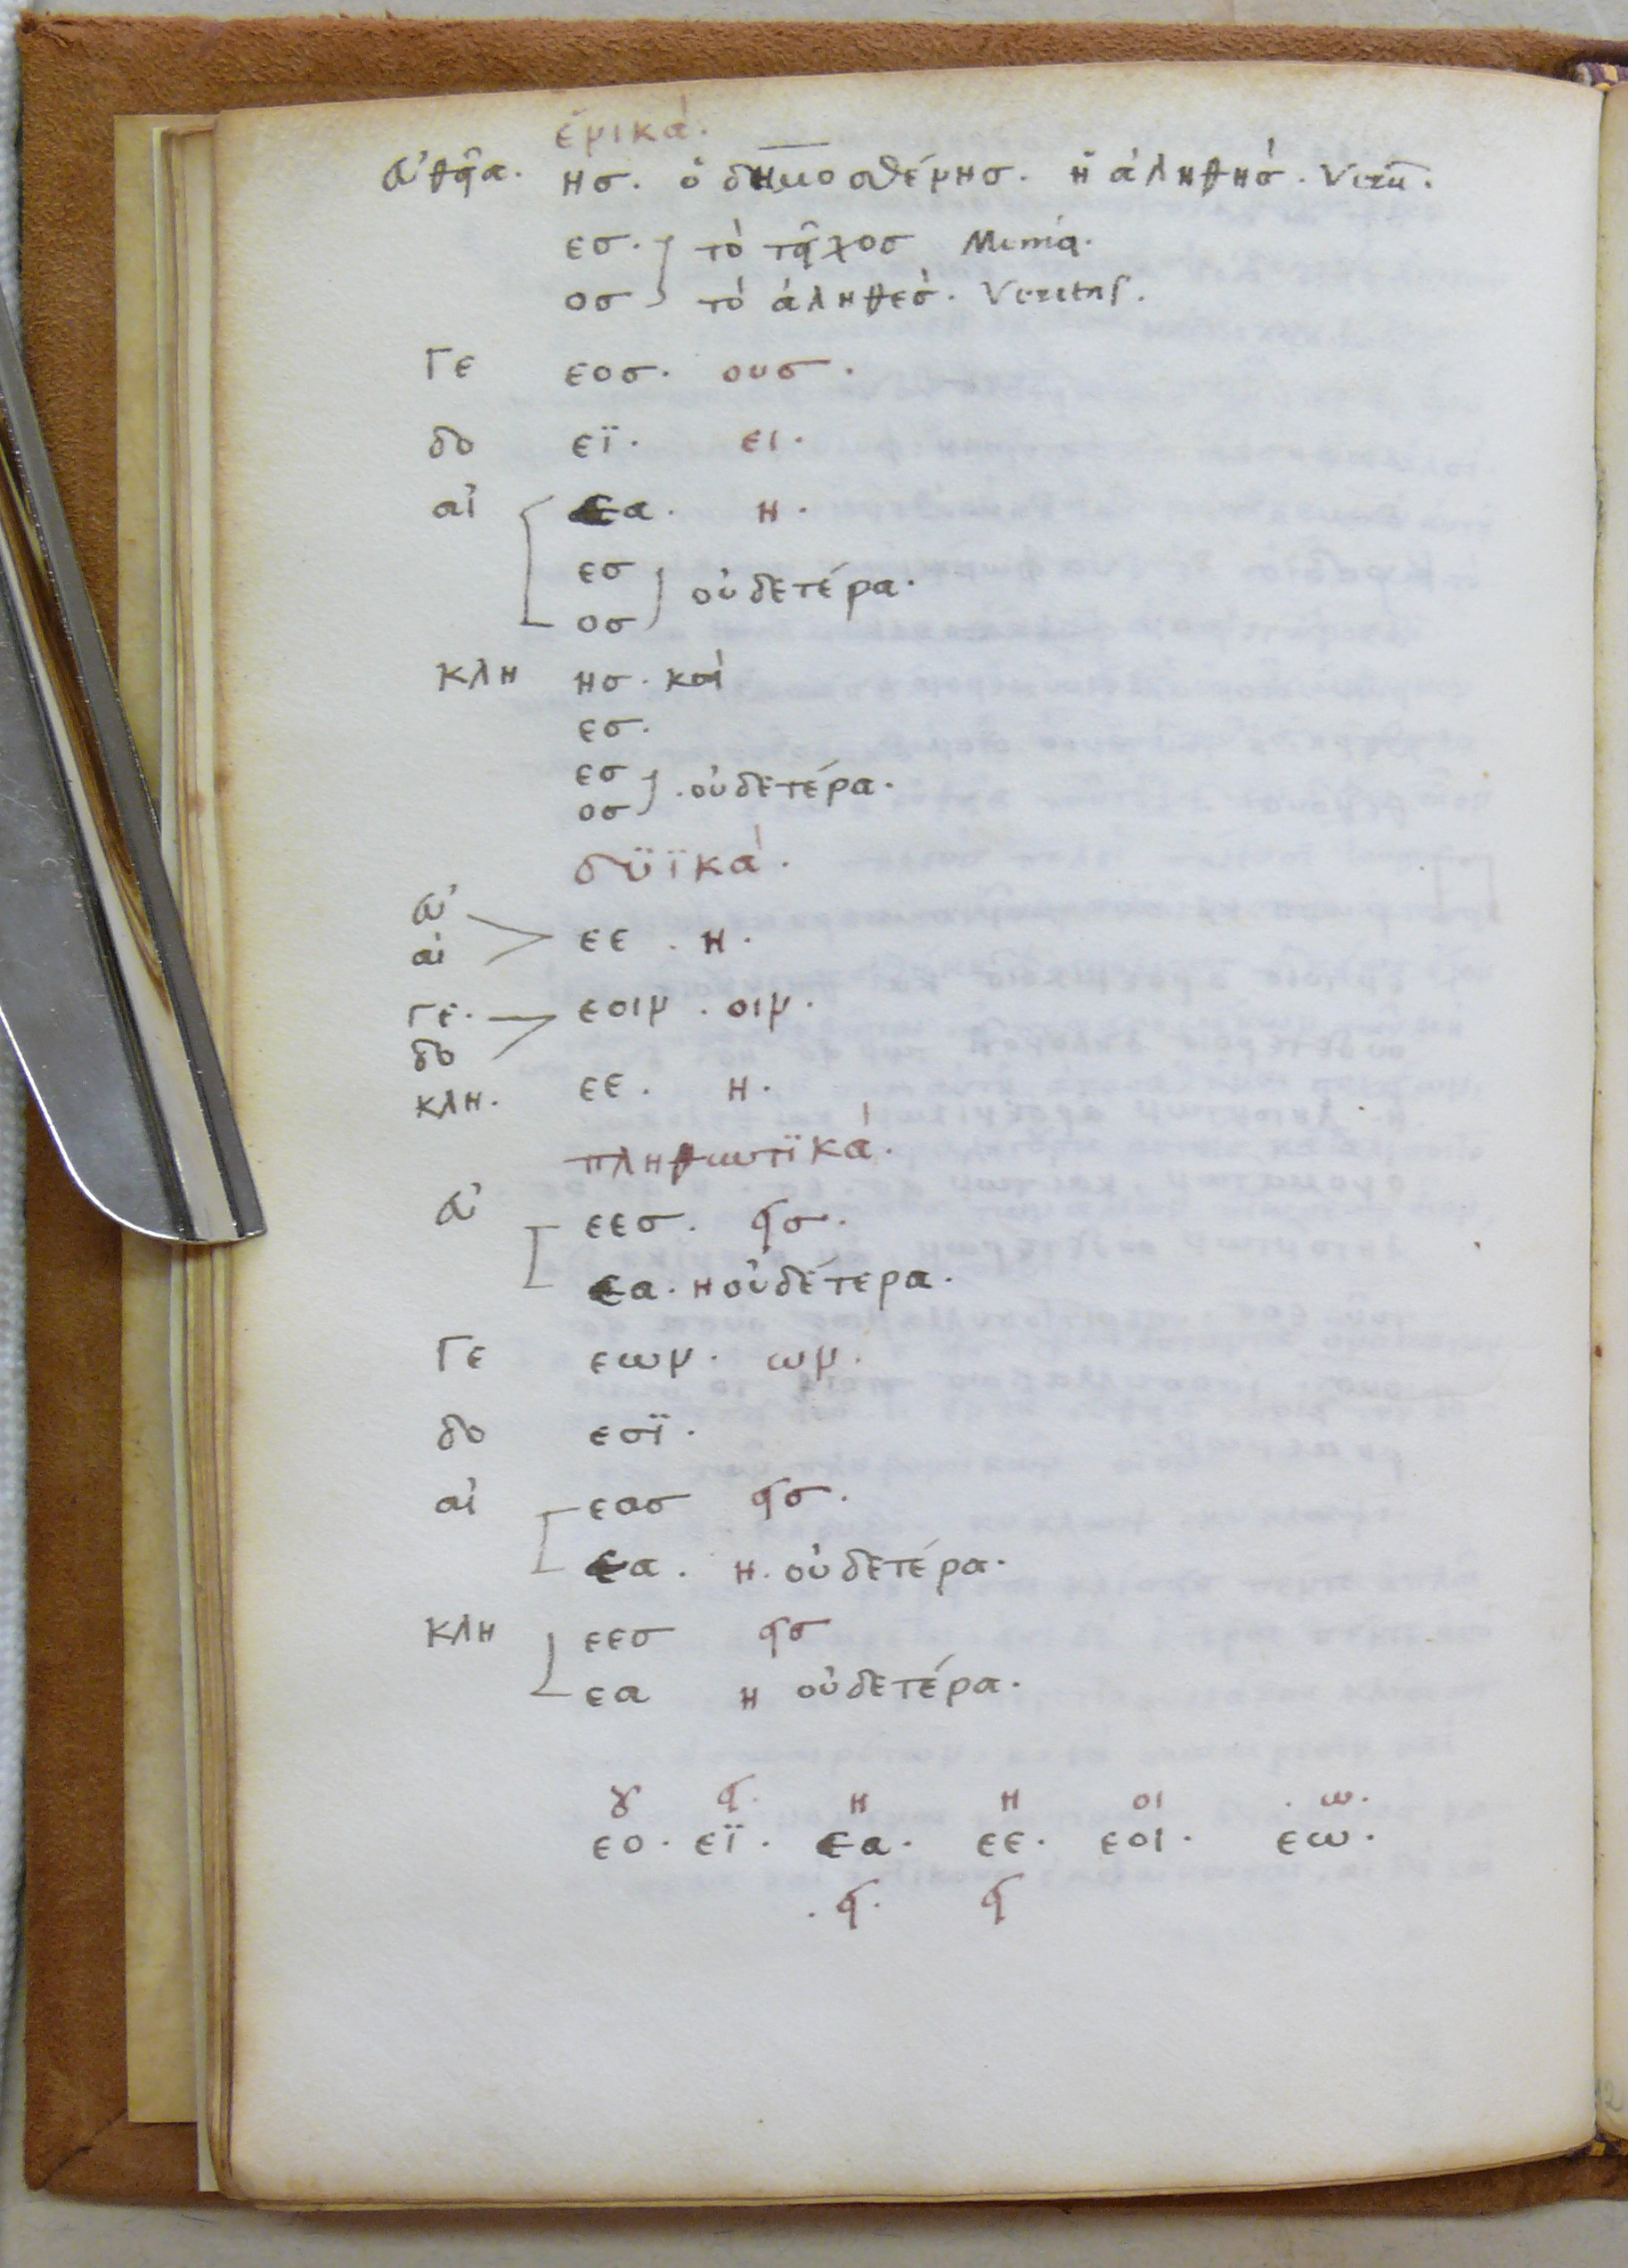 ἑνικά.
ησ. ὁ δημοσθένησ. ἡ ἀληθήσ.
εσ. τὸ τεῖχοσ
οσ τὸ ἀληθέσ. Veritas.
Γε εοσ. ουσ.
δο εϊ. ει.
αἰ εα. η.
εσ
οσ οὐδετέρα.
κλη ησ. καὶ
εσ.
εσ
οσ .οὐδετέρα.
δϋϊκά.
αἰ εε . η.
Γε. εοιν . οιν.
δο
κλη. εε. η.
πληθωτϊκά.
εεσ. εισ.
εα. η οὐδέτερα.
Γε εων. ων.
δο εσϊ.
αἰ εασ εισ.
εα. η. οὐδετέρα.
κλη εεσ εισ
εα η οὐδετέρα.
ου ει. η η οι . ω.
εο. εϊ. εα. εε. εοι. εω.
. ει. ει